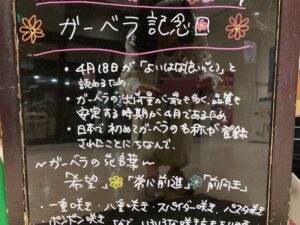 ガーベラ記念日
・4月18日が「よいはな(良い花)」と
読めるため
・ガーベラの出荷量が最も多く、品質も
安定する時期が4月であるため
・日本で初めてガーベラの名称が登録
されたことにちなんで。
〜ガーベラの花言葉〜
「希望」「常に前進」「前向き」
・一重咲き・八重咲き・スパイダー咲き・
ポンポン咲き など、いろいろな咲き方